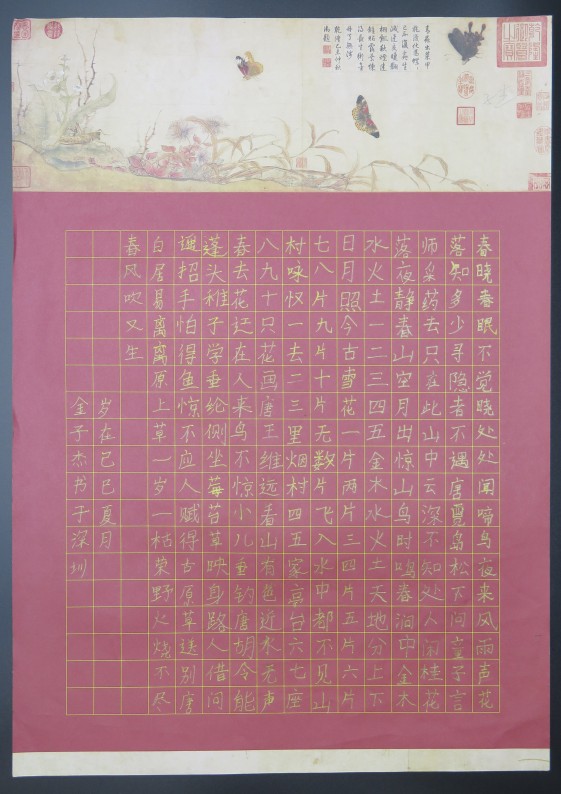 春晓春眠不觉晓处处闻啼鸟夜来风雨声花
落知多少寻隐者不遇唐贾岛松下问童子言
师采药去只在此山中云深不知处人闲桂花
落夜静春山空月出惊山鸟时鸣春涧中金木
水火土一二三四五金木水火土天地分上下
日月照今古雪花一片两片三四片五片六片
七八片九片十片无数片飞入水中都不见山
村咏怀一去二三里烟村四五家亭台六七座
八九十只花画唐王维远看山有色近水无声
春去花还在人来鸟不惊小儿垂钓唐胡令能
蓬头稚子学垂纶侧坐莓苔草映身路人借问
遥招手怕得鱼惊不应人赋得古原草送别唐
白居易离离原上草一岁一枯荣野火烧不尽
春风吹又生
岁在己巳夏月
金子杰书于深圳